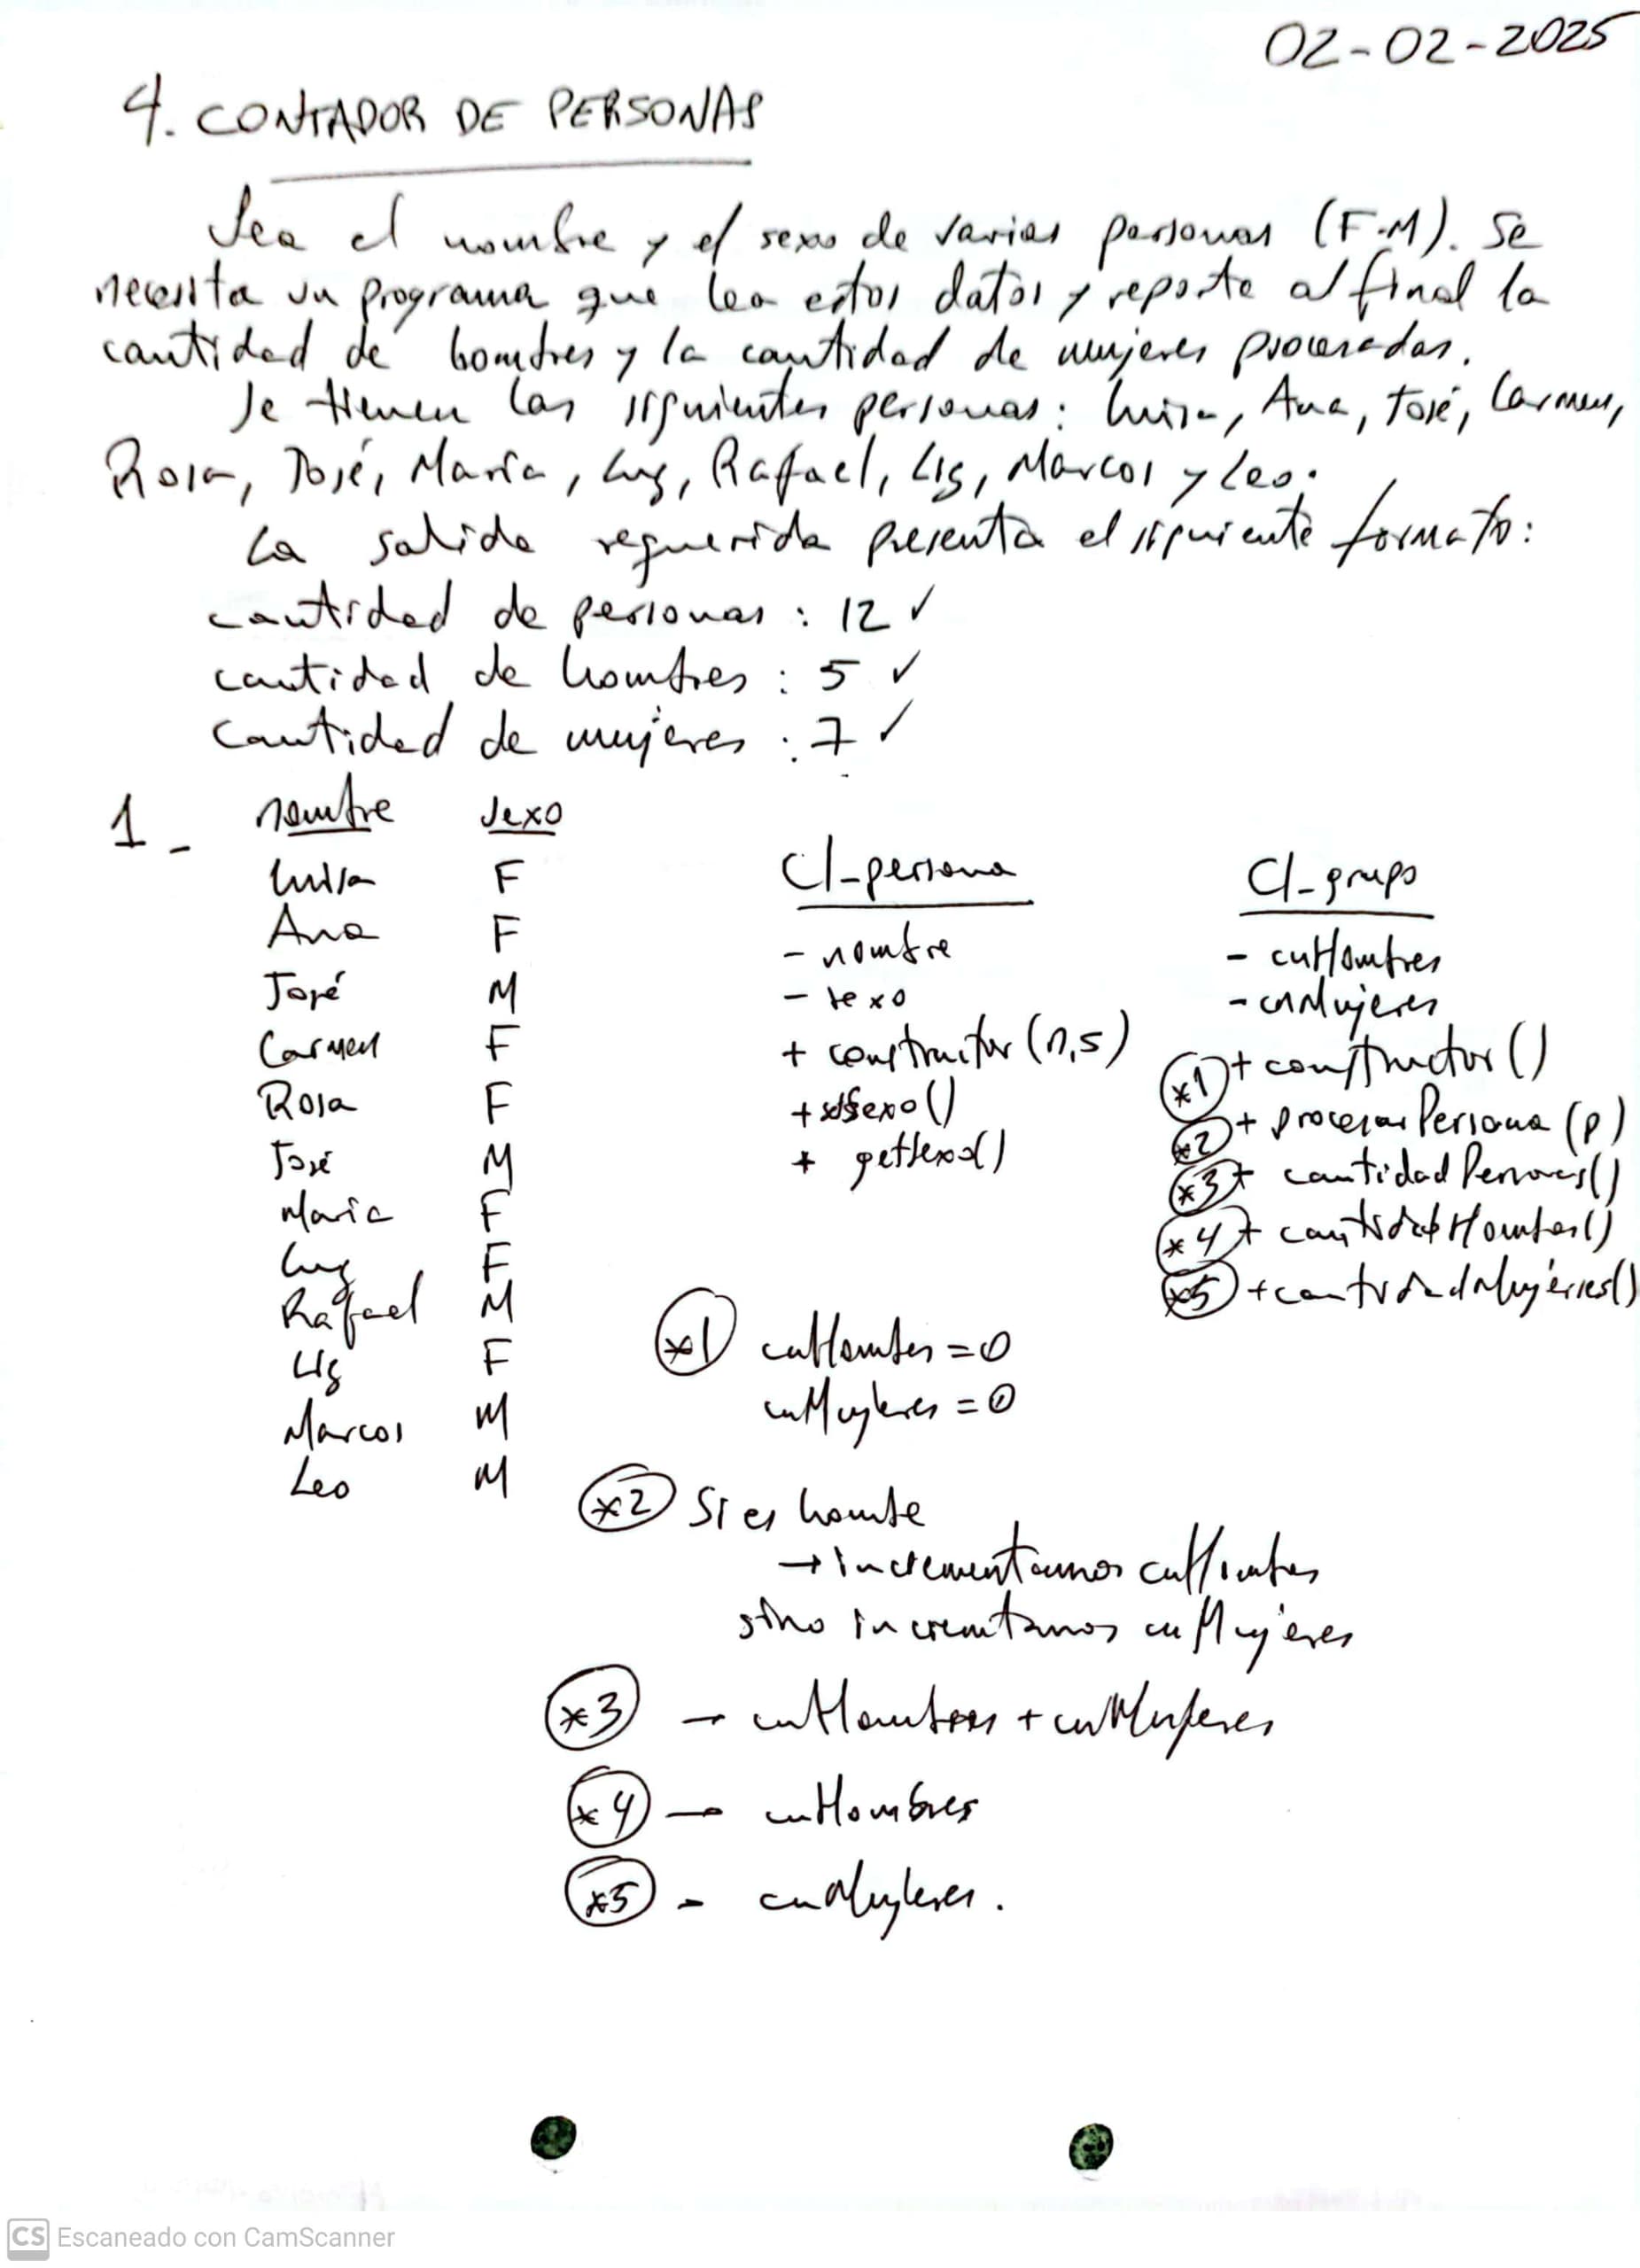 02-02-2025
4. CONTADOR DE PERSONAS
Sea el nombre y el sexo de varias personas (F-M). Se
necesita un programa que lea estos datos y reporte al final la
cantidad de hombres y la cantidad de mujeres procesadas.
Se tienen las siguientes personas: Luisa, Ana, José, Carmen,
Rosa, José, María, Luz, Rafael, Liz, Marcos y Leo.
La salida requerida presenta el siguiente formato:
cantidad de personas : 12 ✓
cantidad de hombres : 5 ✓
cantidad de mujeres : 7 ✓
1_ nombre sexo
Luisa F
Ana F
José M
Carmen F
Rosa F
José M
Maria F
Luz F
Rafael M
Liz F
Marcos M
Leo M
Cl_persona
- nombre
- sexo
+ constructor (n,s)
+ setSexo()
+ getSexo()
Cl_grupo
- cntHombres
- cntMujeres
*1 + constructor ()
*2 + procesarPersona (p)
*3 + cantidadPersonas()
*4 + cantidadHombres()
*5 + cantidadMujeres()
*1 cntHombres = 0
cntMujeres = 0
*2 Si es hombre
→ incrementamos cntHombres
sino incrementamos cntMujeres
*3 → cntHombres + cntMujeres
*4 → cntHombres
*5 - cntMujeres.
CS Escaneado con CamScanner